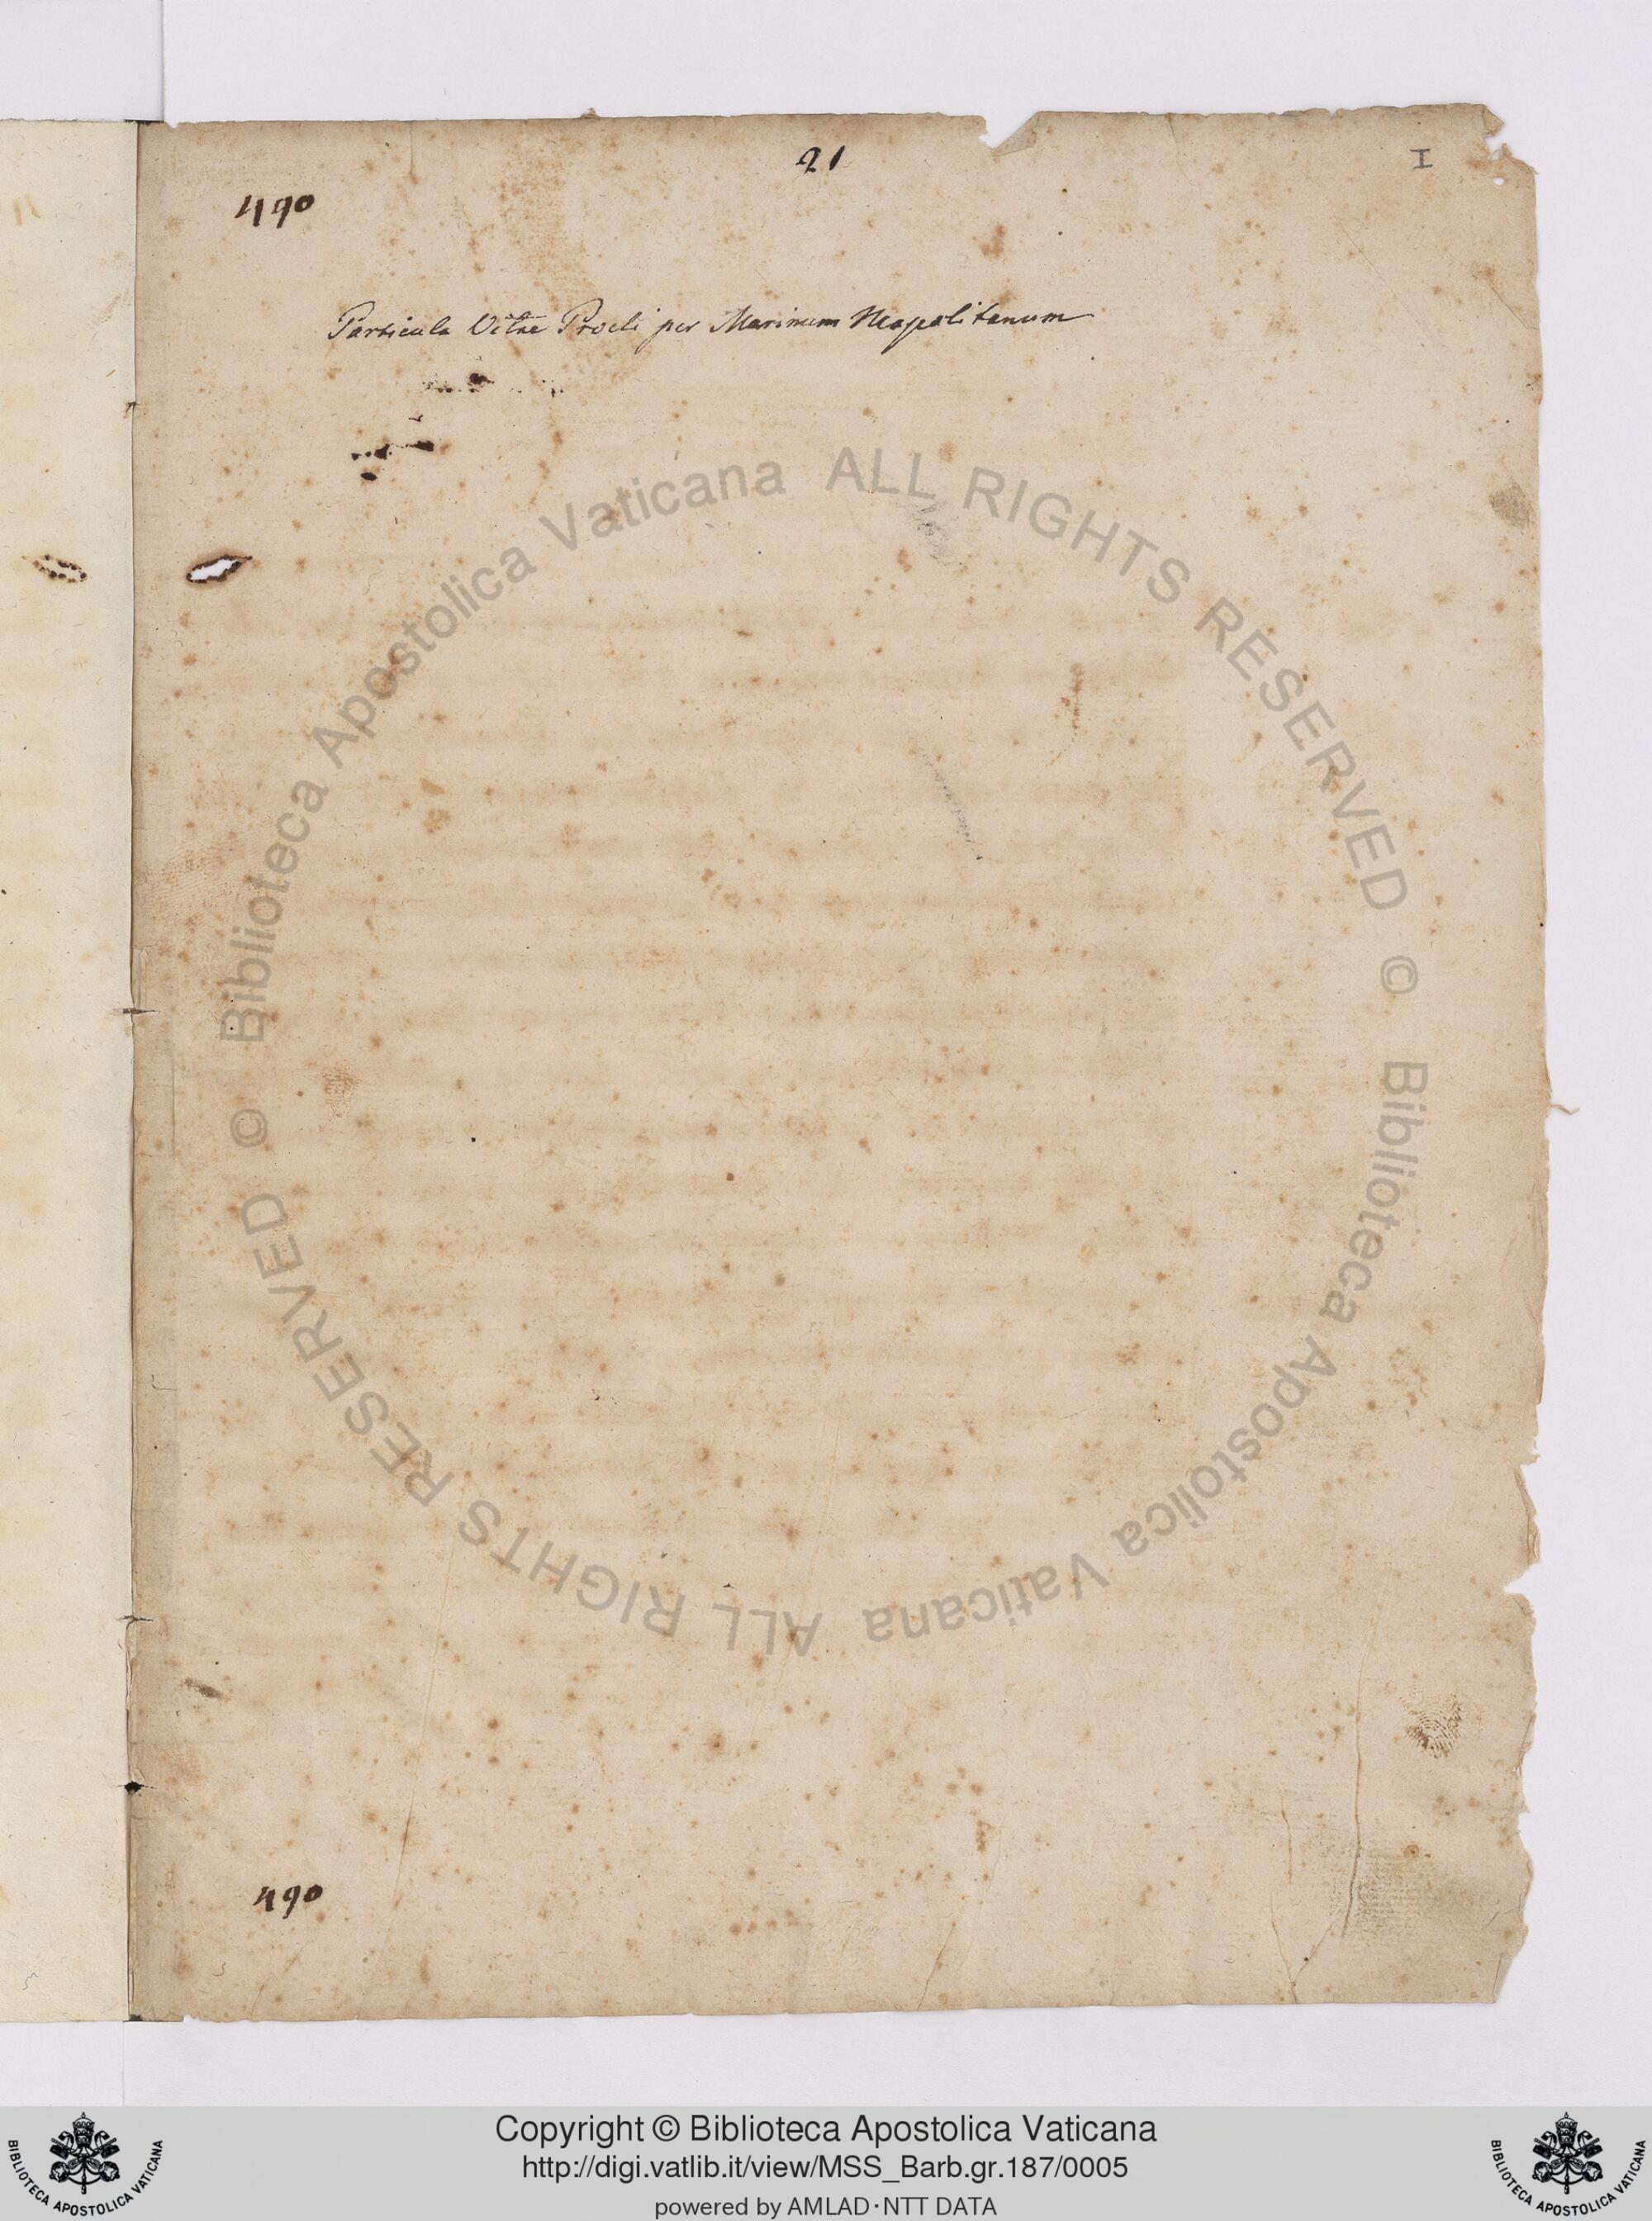 21
I
490
Particula Vitae Procli per Marinum Neapolitanum
490
© Biblioteca Apostolica Vaticana ALL RIGHTS RESERVED
© Biblioteca Apostolica Vaticana ALL RIGHTS RESERVED
Copyright © Biblioteca Apostolica Vaticana
http://digi.vatlib.it/view/MSS_Barb.gr.187/0005
powered by AMLAD·NTT DATA
BIBLIOTECA APOSTOLICA VATICANA
BIBLIOTECA APOSTOLICA VATICANA